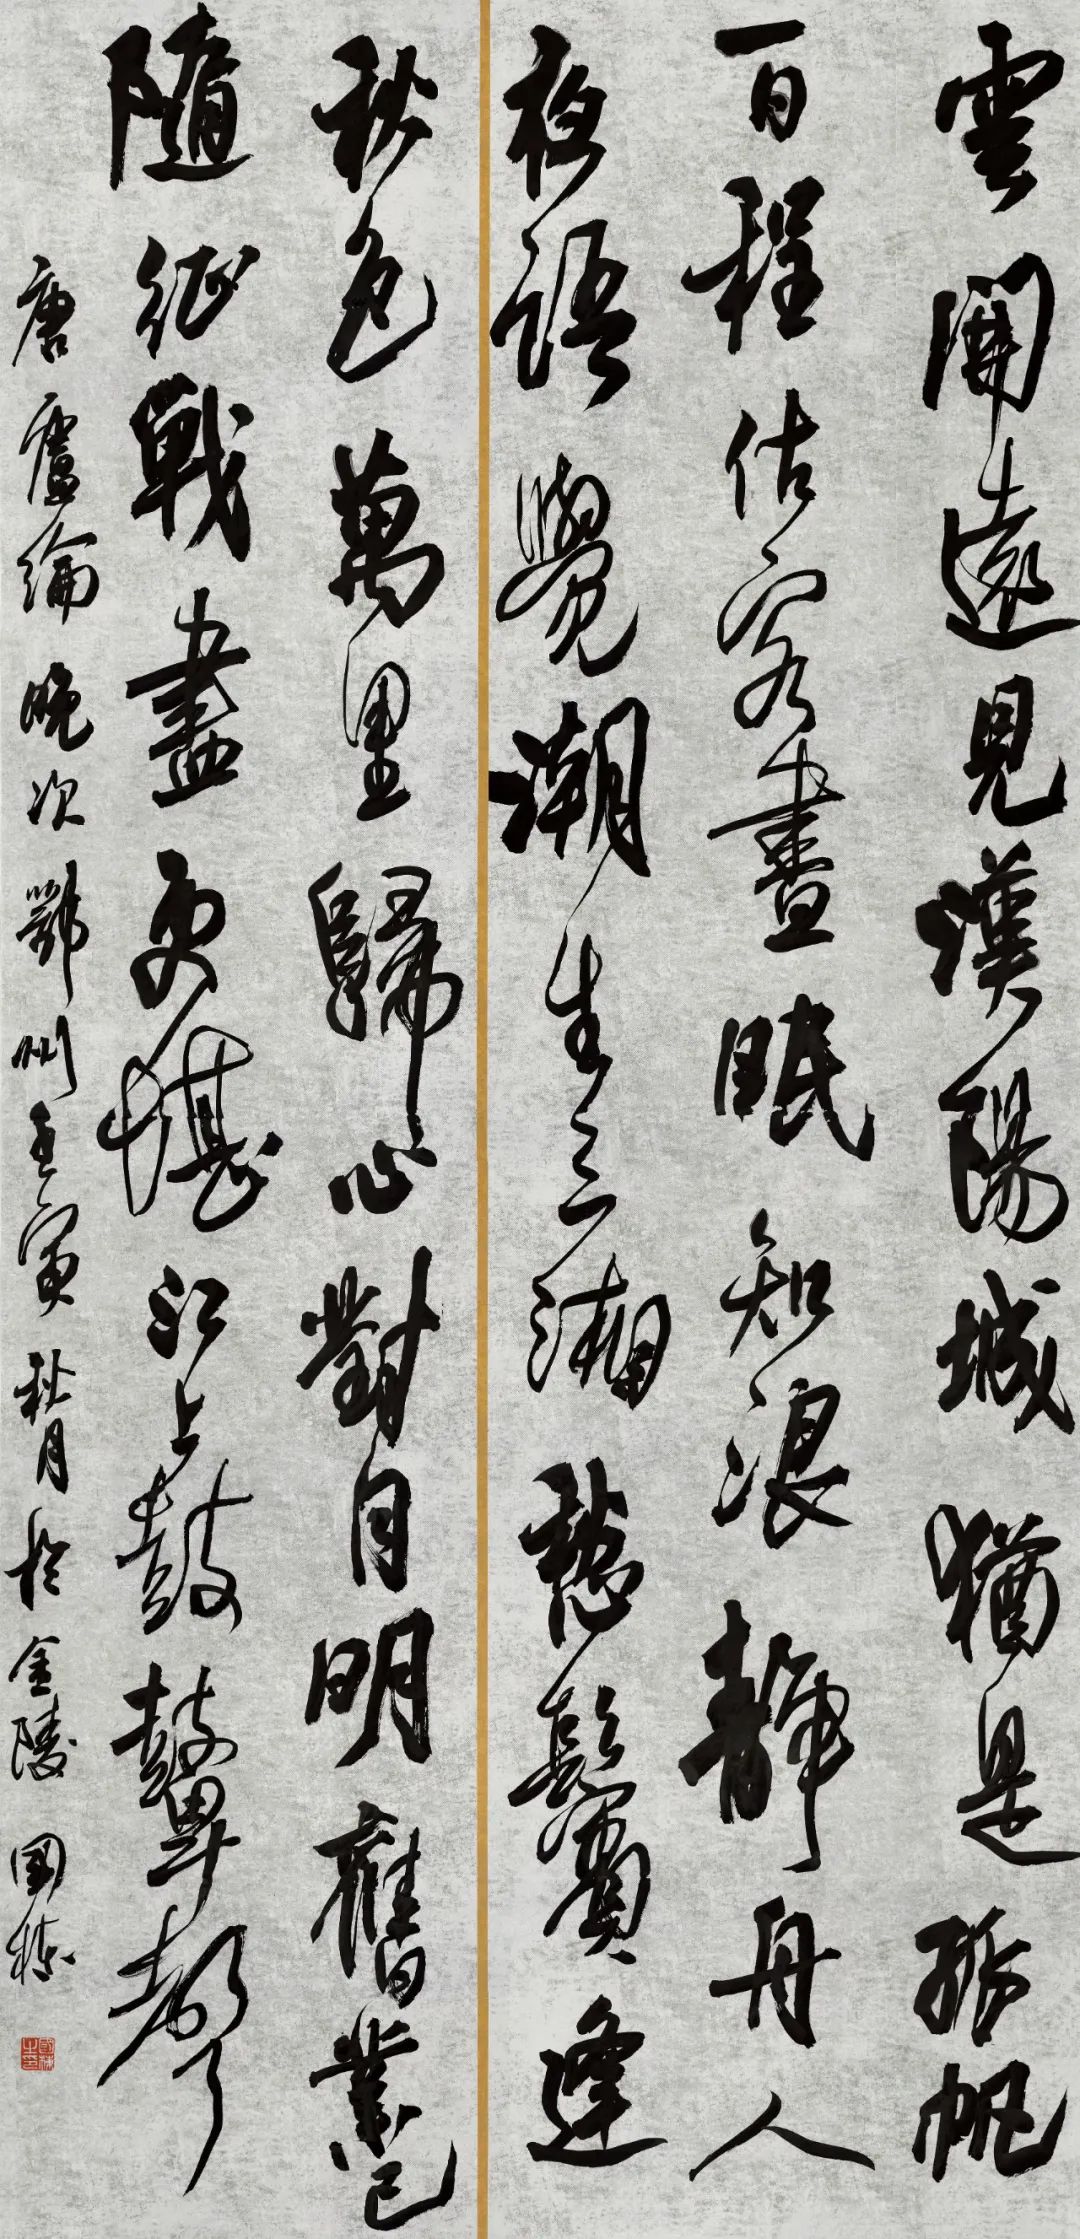 雲開遠見漢陽城猶是孤帆
一日程估客晝眠知浪靜舟人
夜語覺潮生三湘愁鬢逢
秋色萬里歸心對月明舊業已
隨征戰盡更堪江上鼓鼙聲
唐盧綸晚次鄂州壬寅秋月於金陵國栋